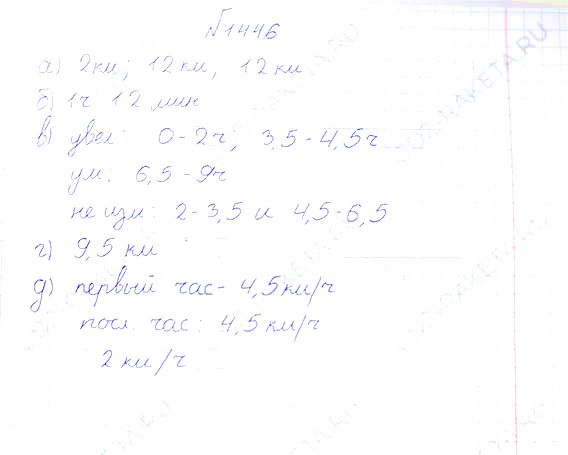 №1446
а) 2км; 12км, 12км
б) 1ч 12 мин
в) увел: 0-2ч; 3,5-4,5ч
ум: 6,5-9ч
не изм: 2-3,5 и 4,5-6,5
г) 9,5 км
д) первый час- 4,5км/ч
посл. час: 4,5 км/ч
2 км/ч